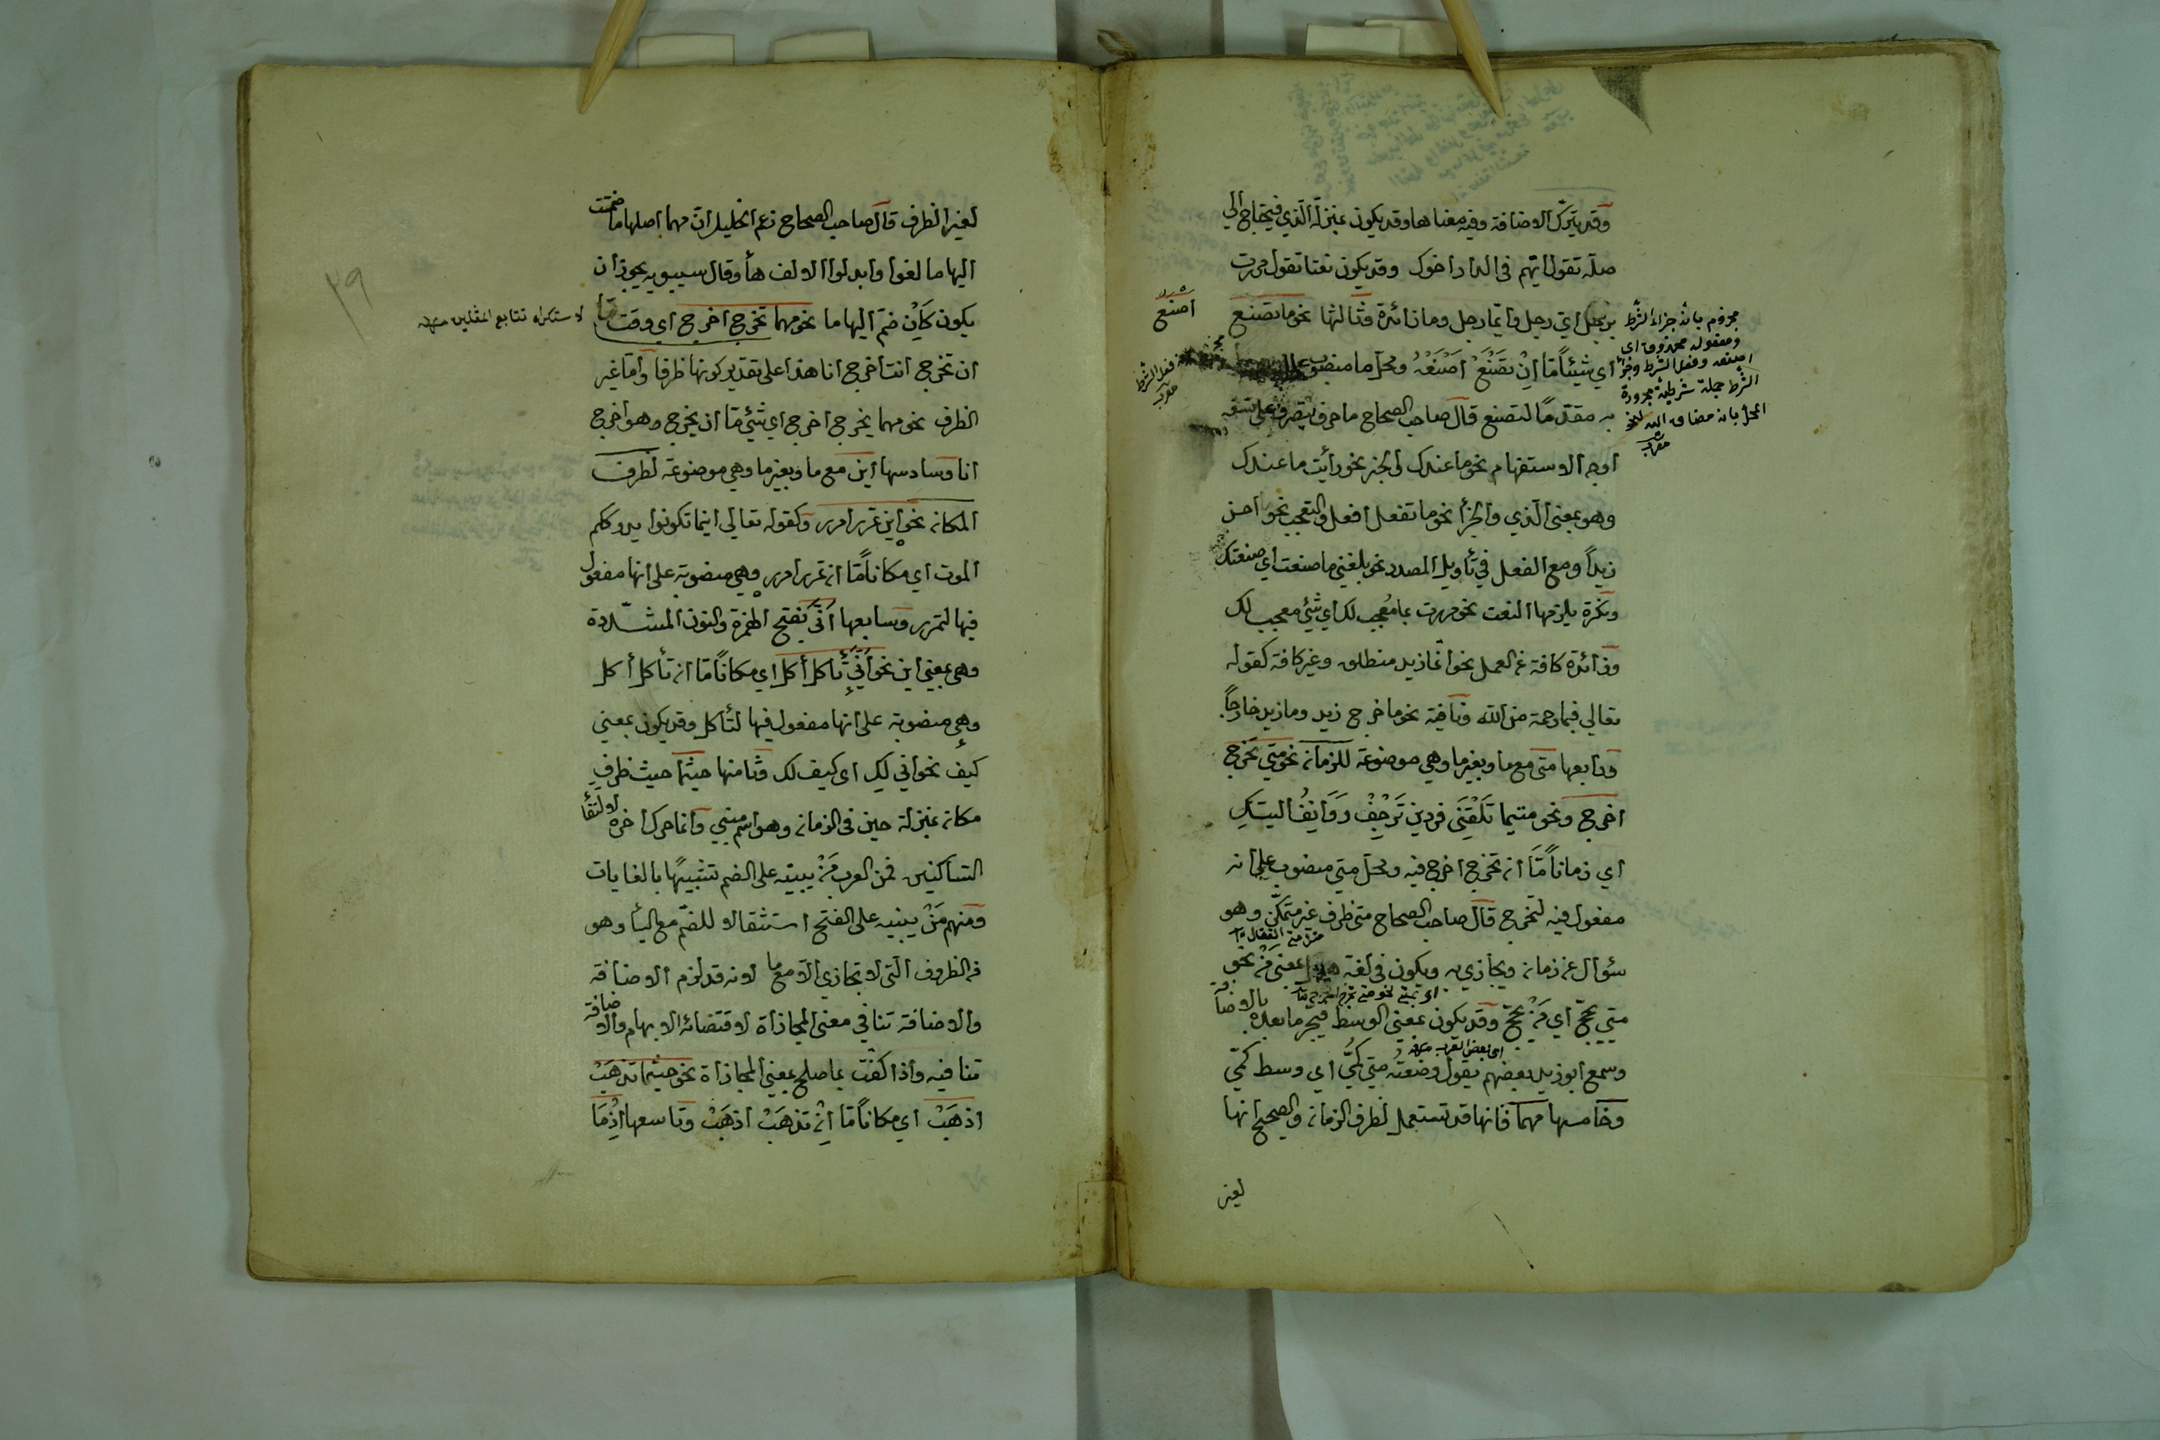 وقد يترك الاضافة وفيه معناها وقد يكون بمنزلة الذي فيحتاج الي
صلة تقول ايّهم في الدار اخوك وقد يكون نعتا تقول مررت
برجل ايّ رجل وايما رجل وما زائدة وثالثها نحو ما تصنع
اصنع
اي شيئًا مّا اِنْ تصْنَعْ اَصْنَعْهُ ومحل ما منصوب على
به مقدمًا لتصنع قال صاحب الصحاح ما حرف يتصرف على تسعة
اوجه الاستفهام نحو ما عندك والخبر نحو رأيت ما عندك
وهو بمعنى الذي والجزأ نحو ما تفعل افعل والتعجب نحو ما احسن
زيداً ومع الفعل في تأويل المصدر نحو بلغني ما صنعت اي صنعتك
ونكرة يلزمها النعت نحو مررت بما مُعجِب لك اي شيئ معجب لك
وزائدة كافة عن العمل نحو انما زيد منطلق وغير كافة كقوله
تعالي فبما رحمة من الله ونافية نحو ما خرج زيد وما زيد خارجاً
ورابعها متي مع ما وبغير ما وهي موضوعة للزمان نحو متي تخرج
اخرج ونحو متيما تَلْقَنِي فردين تَرْجُفْ رَوَانِفُ اليتيك
اي زمانًا مّا ان تخرج اخرج فيه ومحل متي منصوب على انه
مفعول فيه لتخرج قال صاحب الصحاح متى ظرف غير متمكن وهو
سؤال عن زمان ويجازي به ويكون في لغة هذيل بمعنى مِنْ نحو
متي يحجّ اي مَنْ يحجّ وقد يكون بمعنى الوسط فيجر ما بعده بالاضا
اي بعض العرب
وسمع ابو زيد بعضهم يقول وضعتُه متي كُمّي اي وسط كمّي
وخامسها مهما فانها قد تستعمل لظرف الزمان والصحيح انها
لغير
مجزوم بانه جزاء الشرط
ومفعوله محذوف اي
اصنعه وفعل الشرط وجزأ
الشرط جملة شرطية مجرورة
المحل بانه مضاف اليه لنحو
معرب
لغير الظرف قال صاحب الصحاح زعم الخليل انّ مهما اصلها ما ضمّت
اليها ما لغوا وابدلوا الالف هاً وقال سيبويه يجوز ان
يكون كأين ضمّ اليها ما نحو مهما تخرج اخرج اي وقتا مّا
لاستكراه تتابع المثلين منه
ان تخرج انت اخرج انا هذا على تقدير كونها ظرفا وامّا غير
الظرف نحو مهما يخرج اخرج اي شيئ مّا ان يخرج وهو اخرج
انا وسادسها اين مع ما وبغير ما وهي موضوعة لظرف
المكان نحو اين تمرر امرر وكقوله تعالي اينما تكونوا يدرككم
الموت اي مكانًا مّا ان تمرر امرر وهي منصوبة على انها مفعول
فيها لتمرر وسابعها اَنّى بفتح الهمزة والنون المشدّدة
وهي بمعني اين نحو اَنّي تأكل أكل اي مكانًا مّا ان تأكل أكل
وهي منصوبة على انها مفعول فيها لتأكل وقد يكون بمعني
كيف نحو اني لك اى كيف لك وثامنها حيثما حيث ظرف
مكان بمنزلة حين في الزمان وهو اسم مبني وانما حرك اخره لالتقأ
الساكنين فمن العرب مَنْ يبنيه على الضم تشبيهًا بالغايات
ومنهم مَنْ يبنيه على الفتح استثقالا للضمّ مع اليأ وهو
من الظروف التي لا تجازي الا مع ما لانه قد لزم الاضافة
والاضافة تنافي معنى المجازاة لاقتضائه الابهام والاضافة
تنافيه واذا كفّت بما صلح بمعنى المجازاة نحو حيثما تذهَبْ
اذهَبْ اي مكانًا مّا اِنْ تذهَبْ اذهَبْ وتاسعها اِذْمَا
٢٩